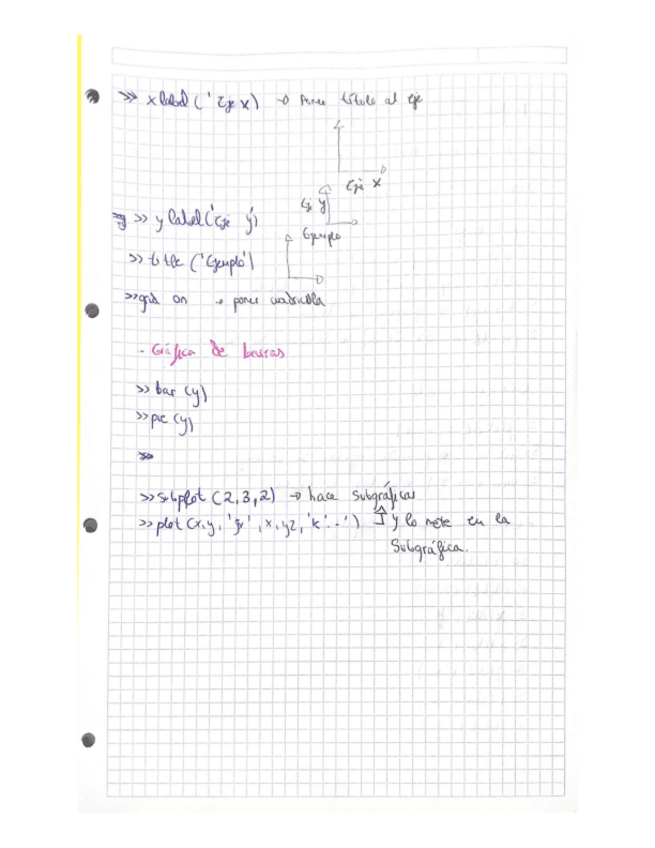 >> xlabel ('Eje x) → Pone título al eje
Eje x
Eje y
>> ylabel ('Eje y')
Ejemplo
>> title ('Ejemplo')
>> grid on → poner cuadricula
- Gráfica de barras
>> bar (y)
>> pie (y)
>>
>> subplot (2,3,2) → hace subgráficas
>> plot (x,y, ' ', x,y2, 'k'--') ⇑ y lo mete en la
Subgráfica.